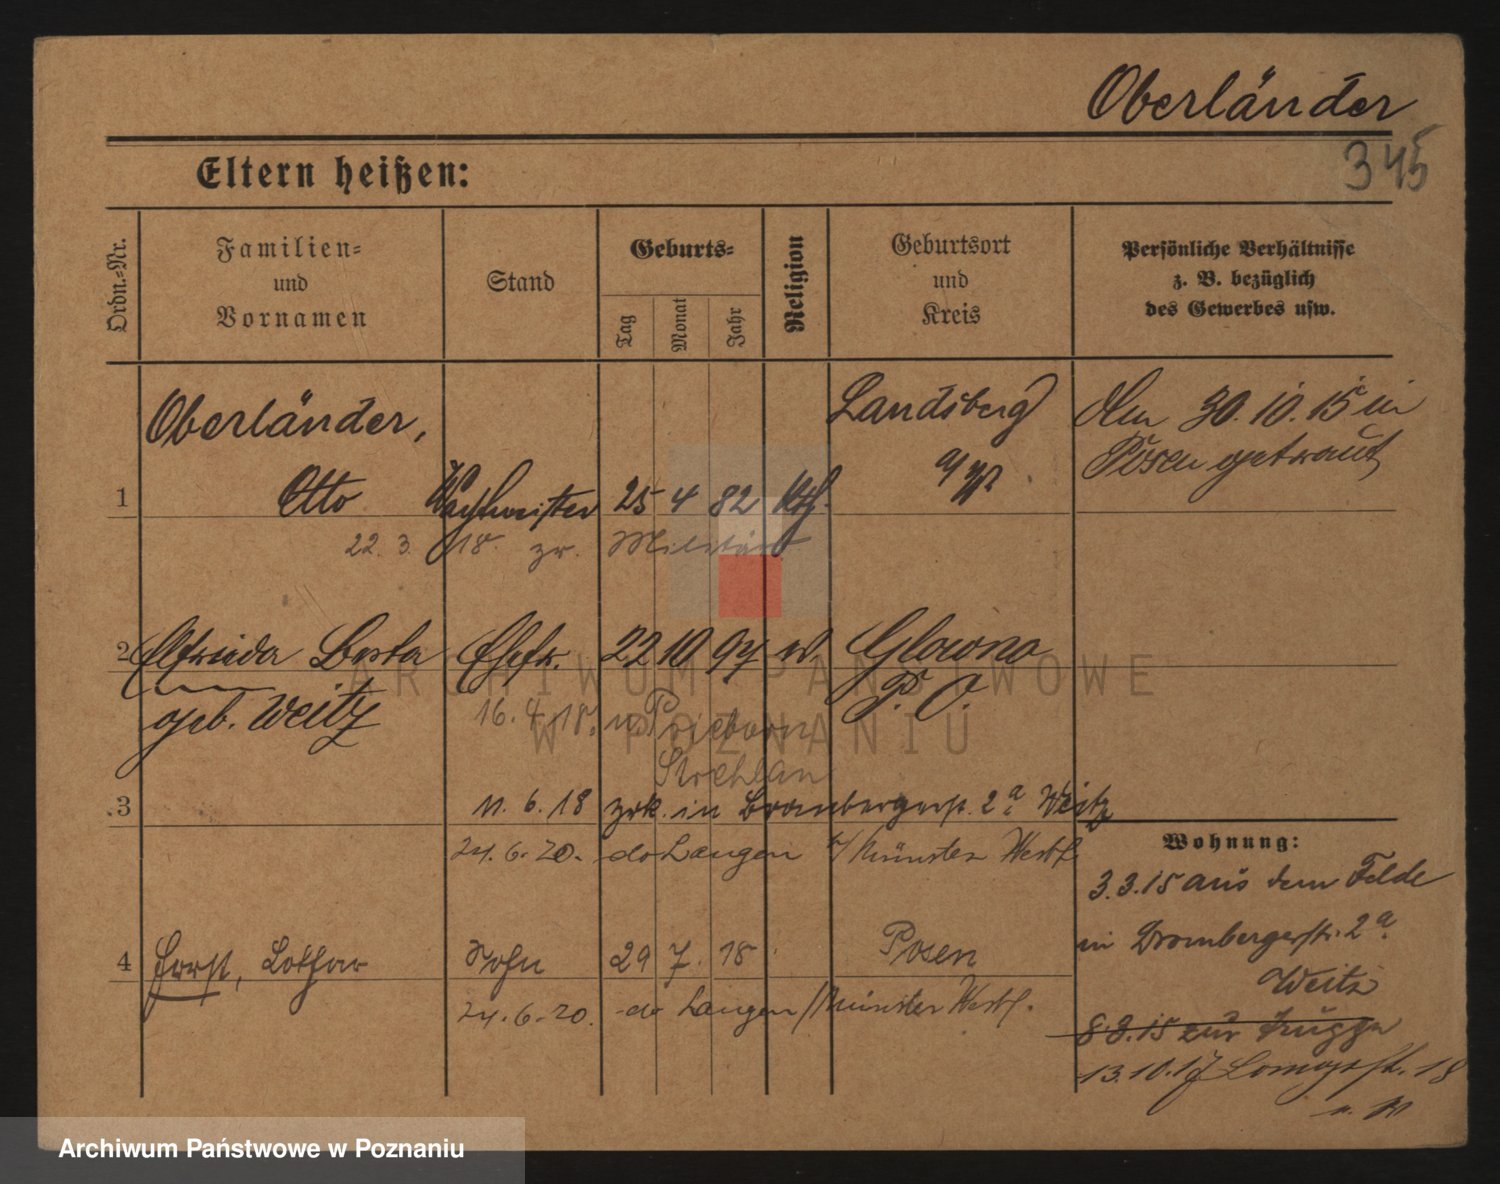 Oberländer
345
Eltern heißen:
Ordn.-Nr.
Familien-
und
Vornamen
Stand
Geburts-
Tag
Monat
Jahr
Religion
Geburtsort
und
Kreis
Persönliche Verhältnisse
z. B. bezüglich
des Gewerbes usw.
Oberländer,
Landsberg
Am 30.10.15 in
Posen getraut
1 Otto Wachtmeister 25 4 82 Kth.
22. 3. 18. zr. Militär
2 Elfrieda Berta Ehefr. 22 10 97 Glowno
geb. Weitz P. O.
16. 4. 18. n. Prieborn
Strehlan
3 11. 6. 18 zrk. in Brombergerstr. 2a Weitz
24. 6. 20. do Langen / Münster Westf.
Wohnung:
3. 3. 15 aus dem Felde
in Brombergerstr. 2a
Weitz
4 Horst, Lothar Sohn 29 7. 18 Posen
24. 6. 20. do Langen / Münster Westf.
8 8. 15 zur Truppe
13. 10. 17 18
ARCHIWUM PAŃSTWOWE
W POZNANIU
Archiwum Państwowe w Poznaniu